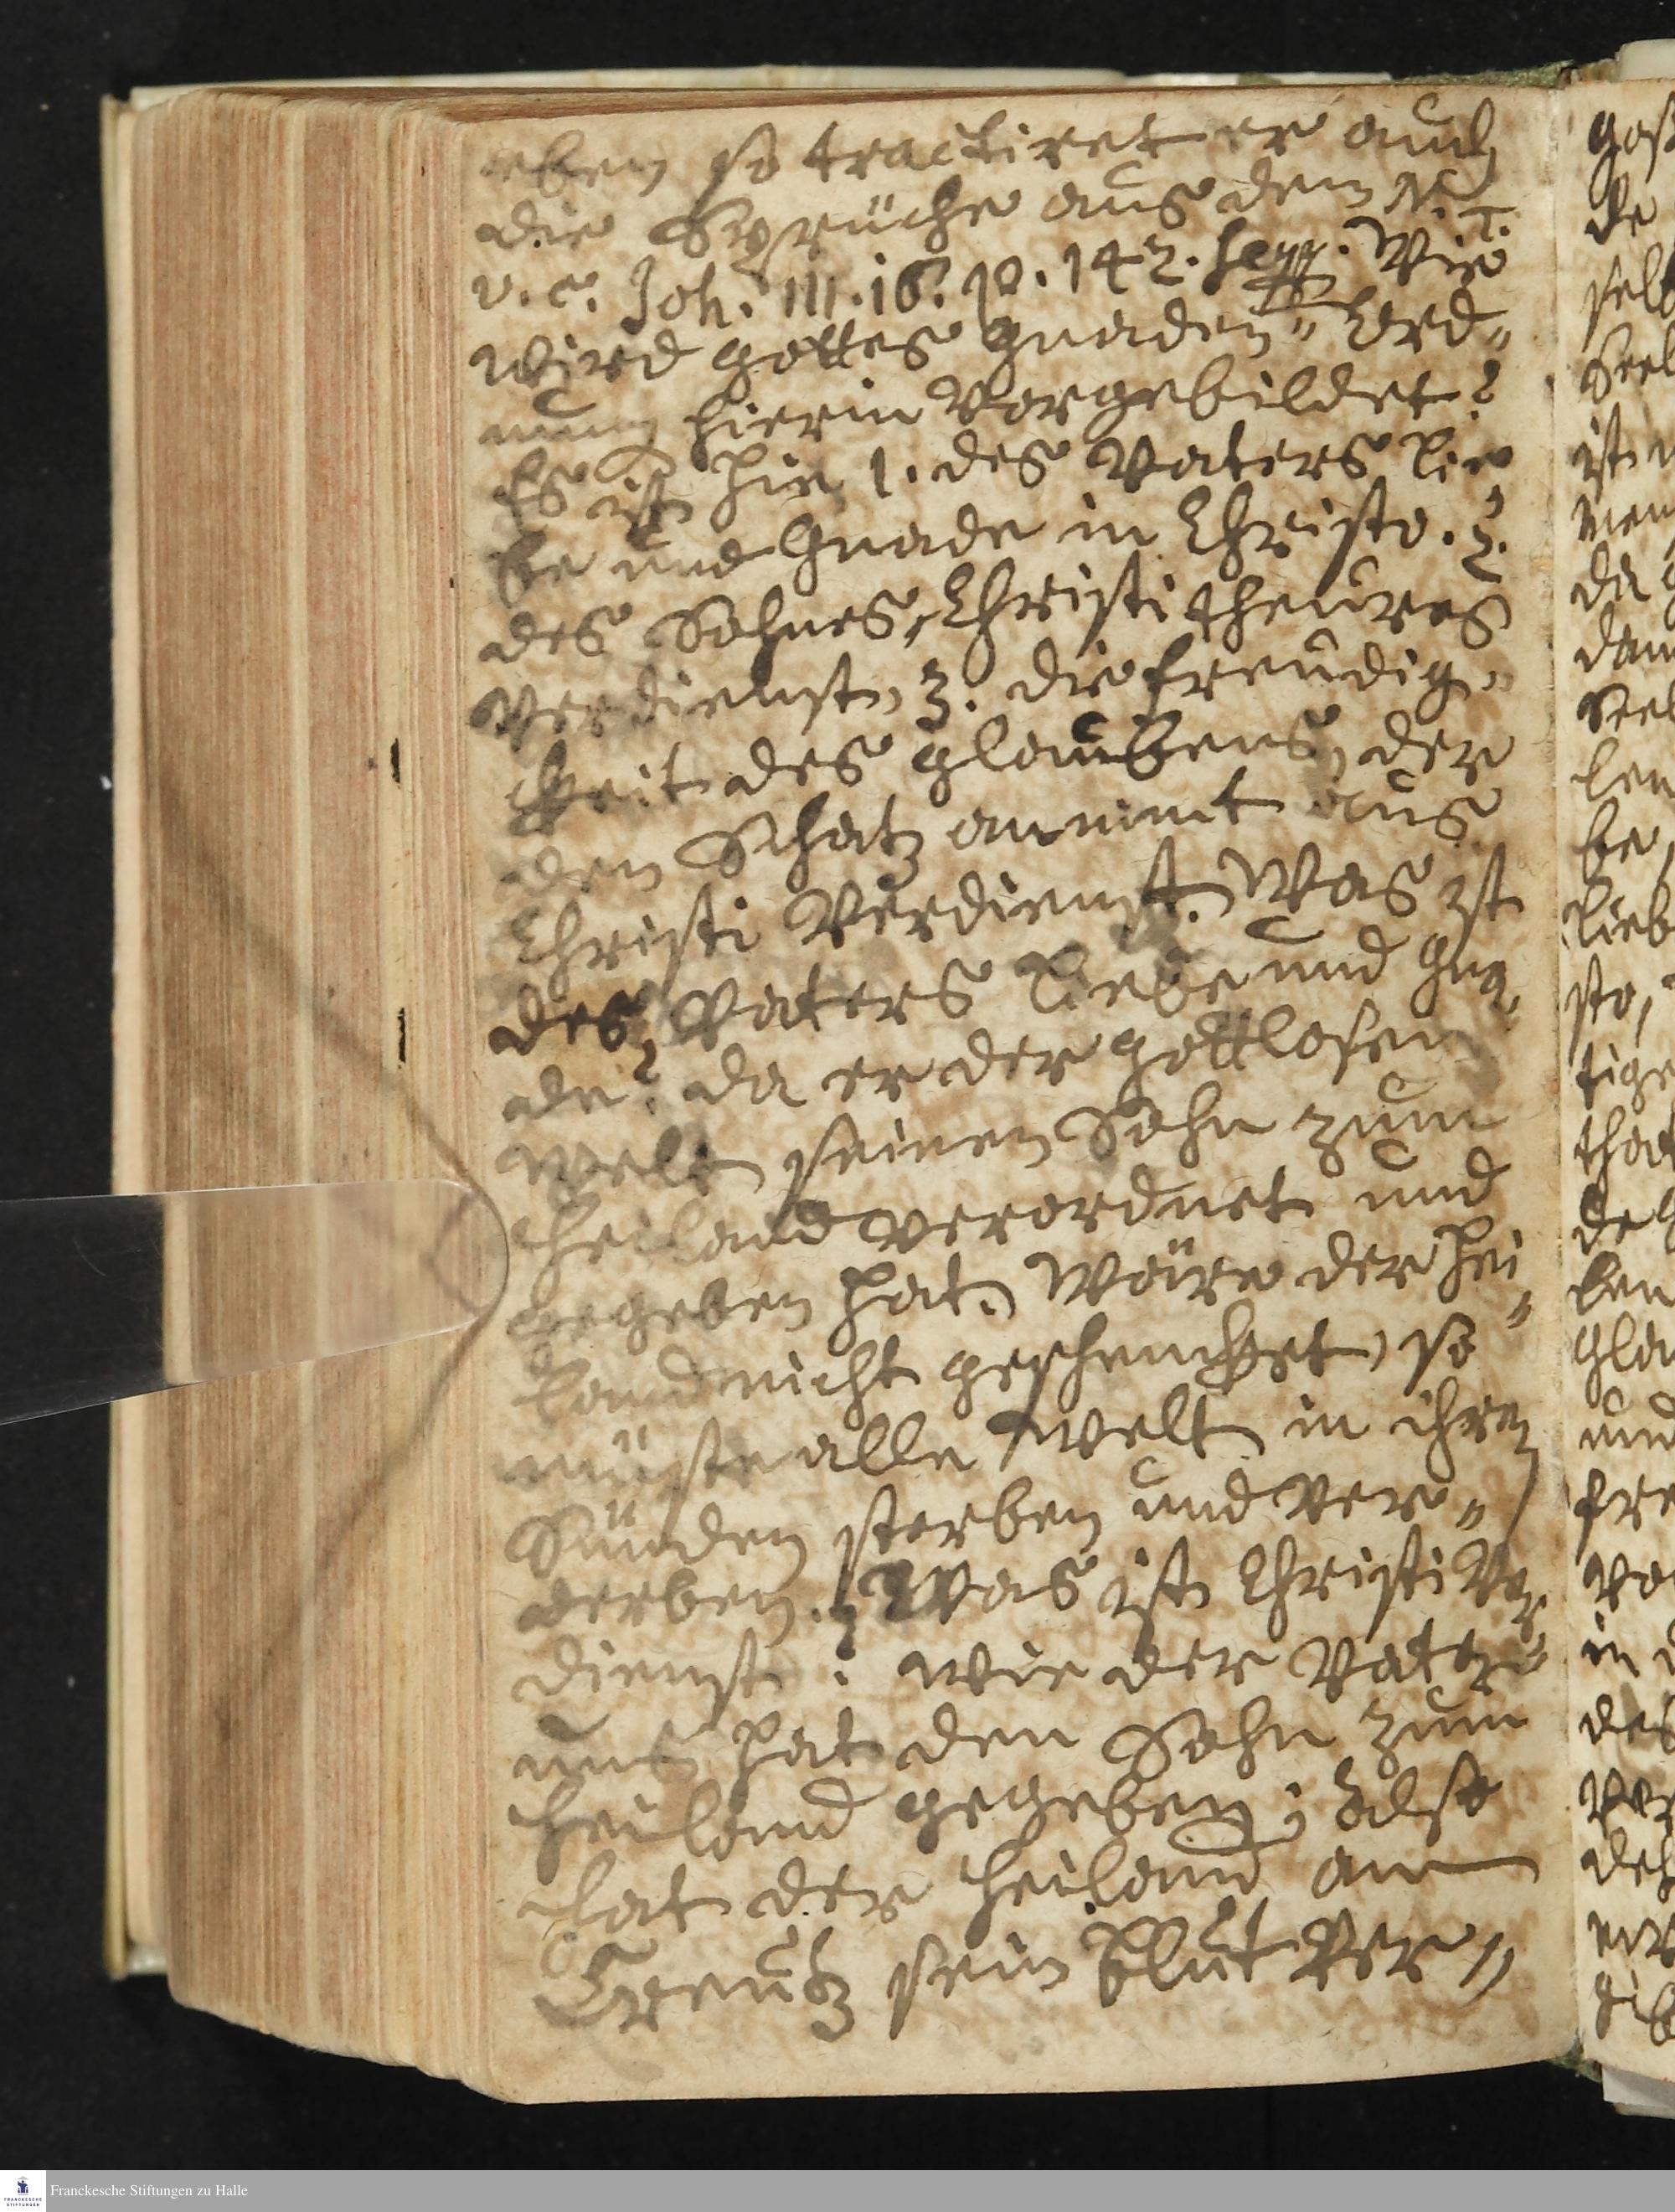 eben so tractiret er auch
die Sprüche aus dem N. T.
v. c. Joh. III. 16. p. 142. seqq. Wie
wird gottes gnaden-Ord-
nung hierin vorgebildet?
Es ist hie 1. des Vaters Lie-
be und Gnade in Christo. 2.
des Sohnes, Christi theures
Verdienst, 3. die freudig-
keit des glaubens, der
den Schatz annimt aus
Christi Verdienst. Was ist
des Vaters Liebe und gna-
de? da er der gottlosen
welt seinen Sohn zum
Heiland verordnet und
gegeben hat. Wäre der Hei-
land nicht geschencket, so
müste alle welt in ihren
Sünden sterben und ver-
derben. Was ist Christi Ver-
dienst? wie der Vater
uns hat den Sohn zum
Heiland gegeben; also
hat der Heiland am
Creutz sein Blut ver-
Franckesche Stiftungen zu Halle